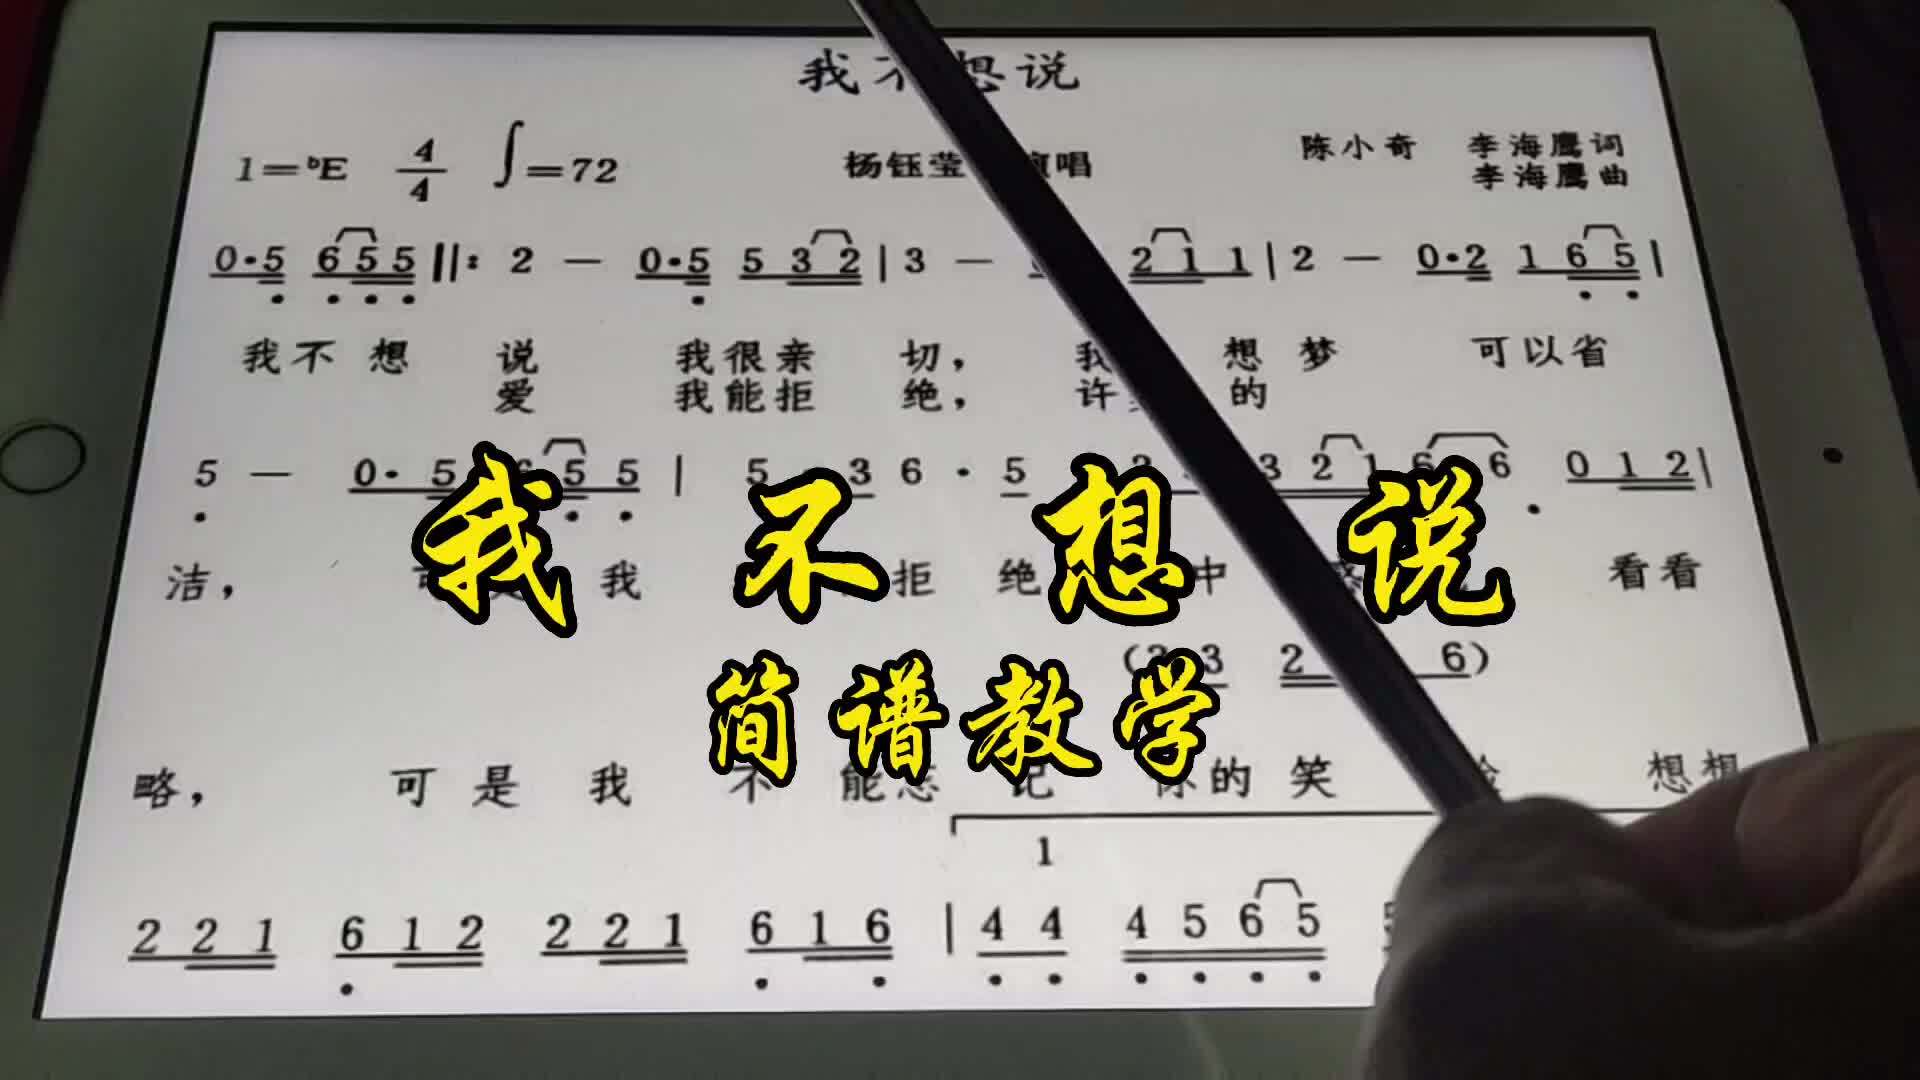 我不想说
1=♭E 4/4 ʃ=72 杨钰莹 演唱 陈小奇 李海鹰词
李海鹰曲
0·5 6 5 5 ‖: 2 — 0·5 5 3 2 | 3 — 2 1 1 | 2 — 0·2 1 6 5 |
我不 想 说 我很亲 切, 我 想 梦 可以省
爱 我能拒 绝, 许 的
5 — 0· 5 6 5 5 | 5 3 6 · 5 3 2 1 6 6 0 1 2 |
洁, 我 拒 绝 中 看看
3 2 6)
略, 可 是 我 不 能忘 记 你的 笑 脸 想想
1
2 2 1 6 1 2 2 2 1 6 1 6 | 4 4 4 5 6 5
我 不 想 说
简谱教学